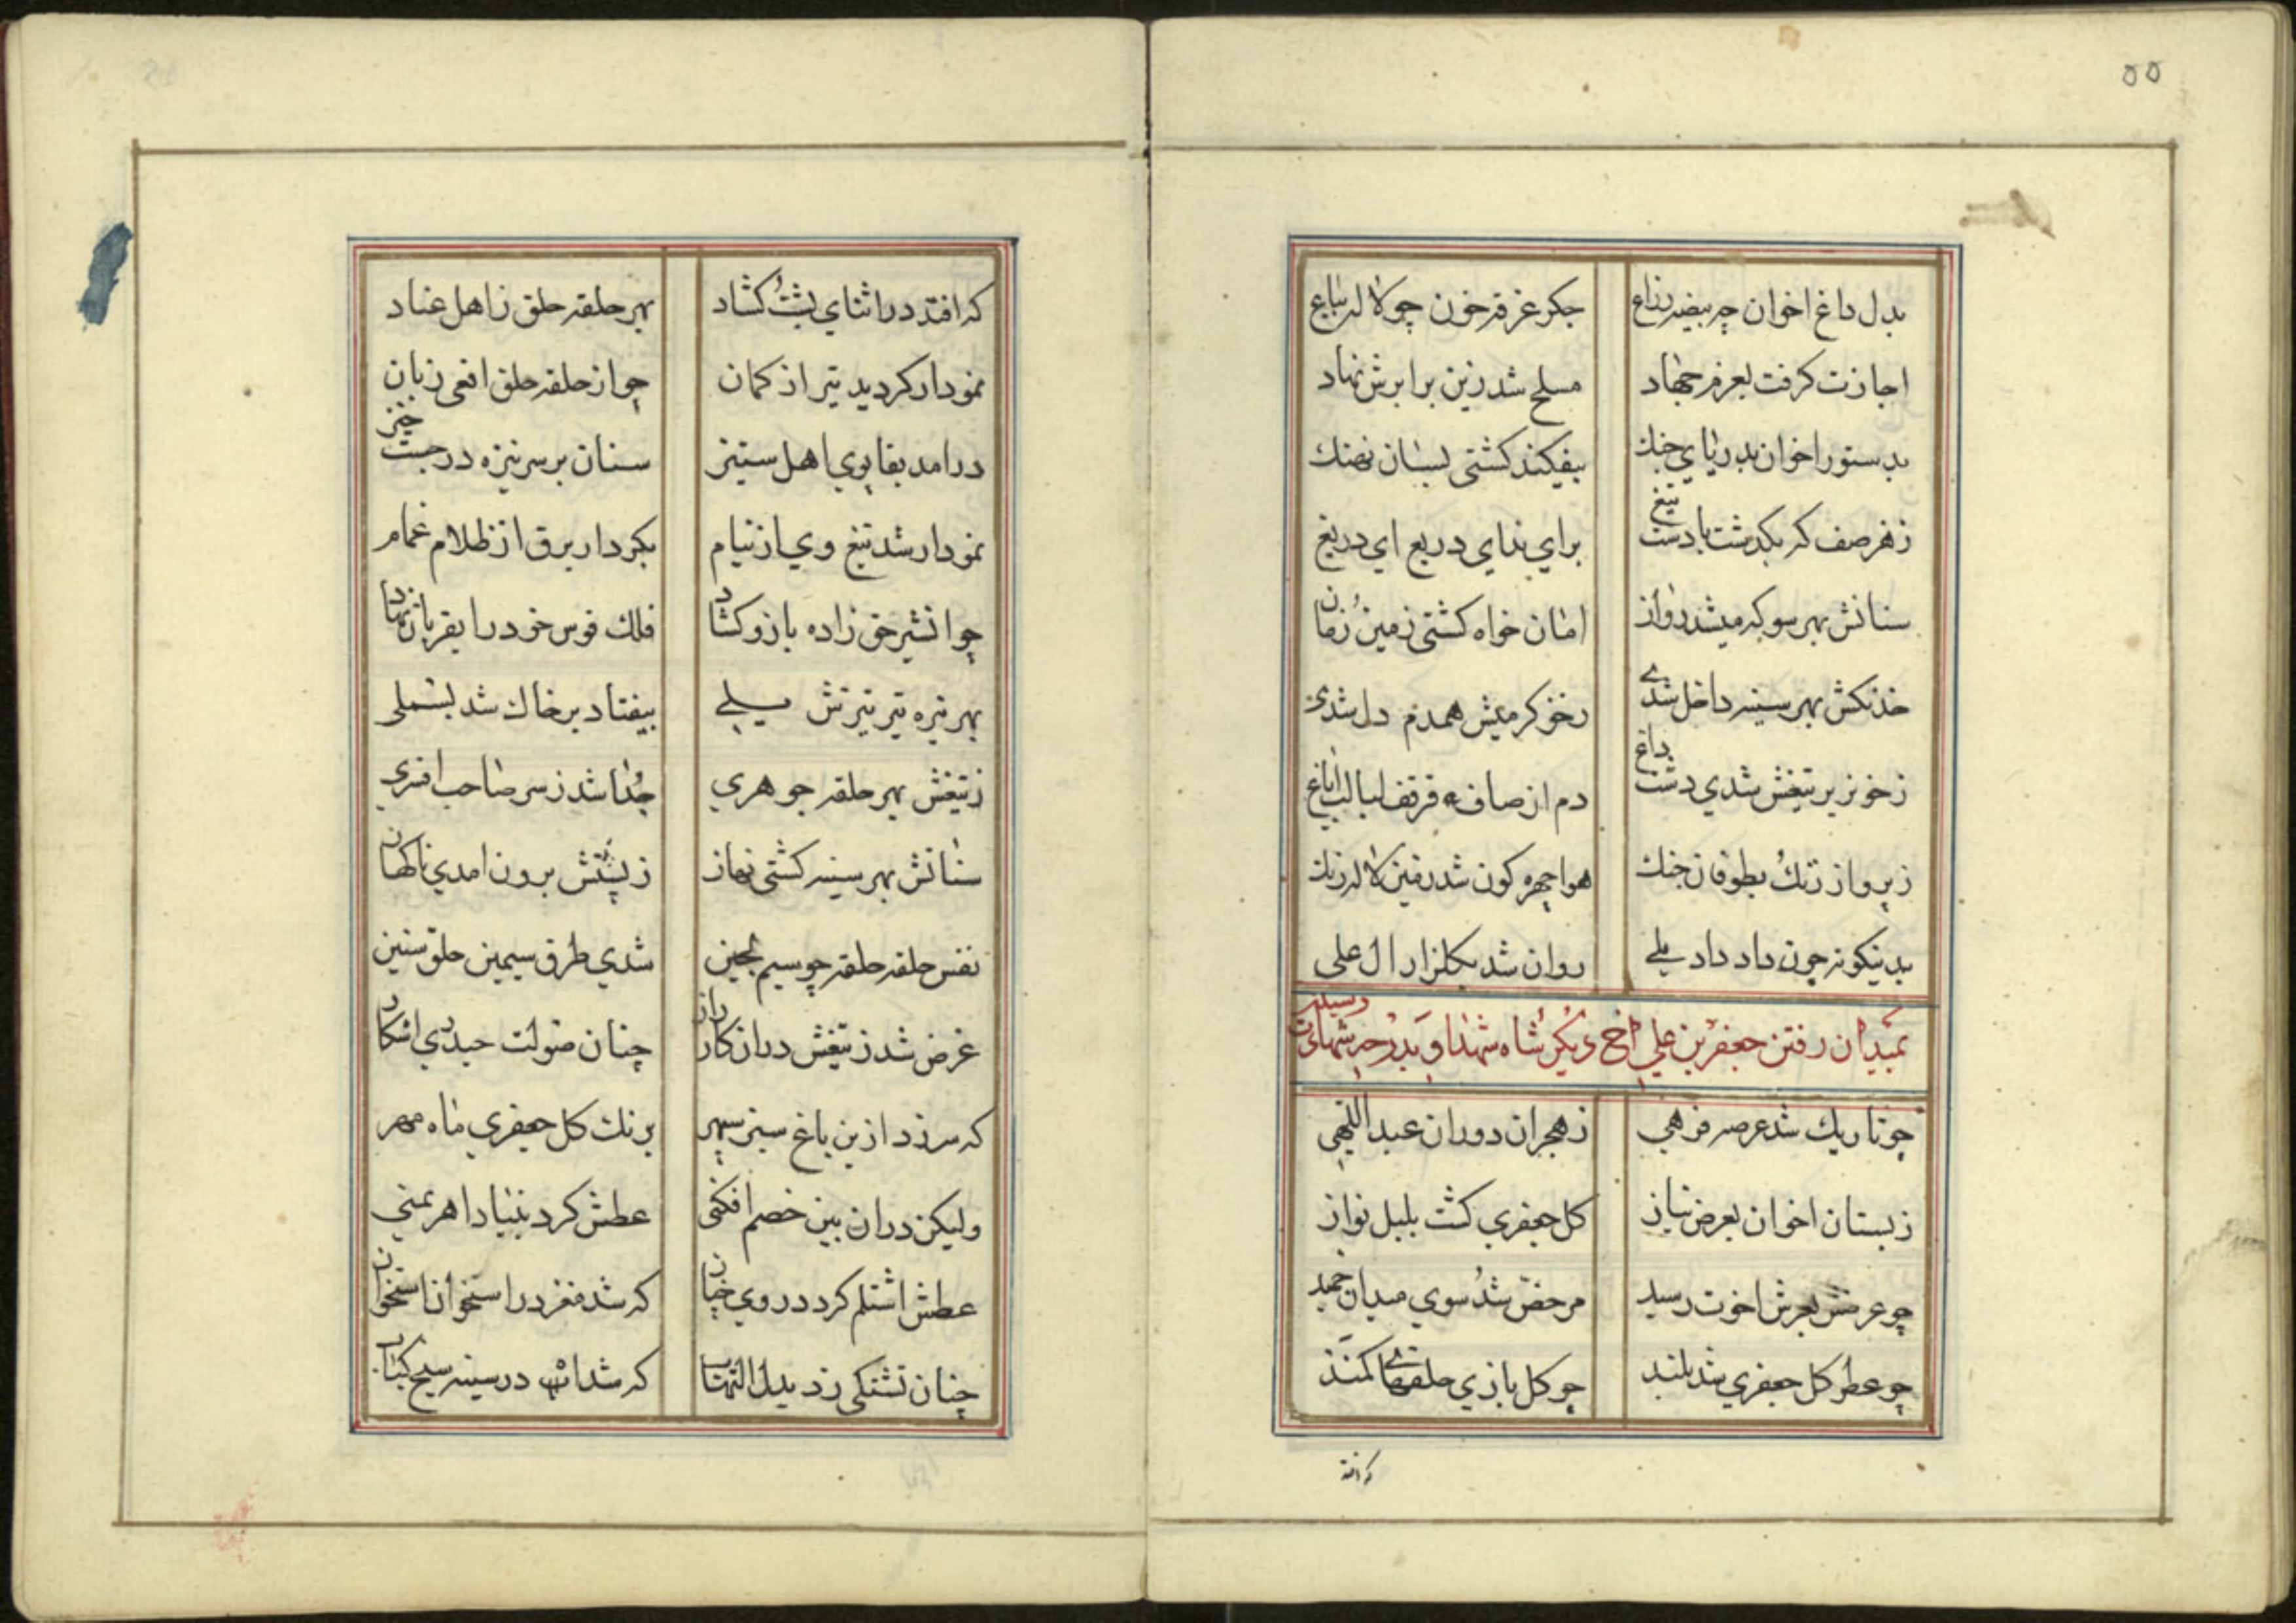 ۵۵
بدل داغ اخوان چه بیضه زناغ
جکر غرقه خون چو لاله بباغ
اجازت کرفت بعزم جهاد
مسلح شد زین برابرش نهاد
بدستور اخوان بدریای جنك
بیفکند کشتی بسان نهنك
ز هر صف که بکذشت با دست تیغ
برای ندای دریغ ای دریغ
سنانش بهر سو که میشد روان
امان خواه کشتی زمین و زمان
خدنکش بهر سینه داخل شدی
بخونکرمیش همدم دل شدی
ز خونریز تیغش شدی دشت داغ
دم از صاف قرقف لبالب ایاغ
ز پرواز رنك بطوفان جنك
هوا چهره کون شد زمین لاله رنك
بدینکونه چون داد داد یلی
روان شد بکلزار ال علی
بمیدان رفتن جعفر بن علی اخ دیکر شاه شهدا و بدرجه شهادت رسیدن
چو تاریك شد عرصه فرهی
ز هجران دوران عبد اللهی
ز بستان اخوان بعرض نیاز
کل جعفری کشت بلبل نواز
چو عرضش بعرش اخوت رسید
مرخص شد سوی میدان چمید
چو عطر کل جعفری شد بلند
چو کل بازی حلقهای کمند
که افتد
که افتد در اثنای بست و کشاد
بهر حلقه حلق ز اهل عناد
نمودار کردید تیر از کمان
چو از حلقه حلق افعی زبان
درامد بقابوی اهل ستیز
سنان بر سر نیزه در جست خیز
نمودار شد تیغ وی از نیام
بکردار برق از ظلام غمام
چو ان شیر حق زاده بازو کشاد
فلك قوس خود را بقربان نهاد
بهر تیره تیر تیزش یلی
بیفتاد بر خاك شد بسملی
ز تیغش بهر حلقه جوهری
جدا شد ز سر صاحب افسری
سنانش بهر سینه کشتی نهان
ز پشتش برون امدی ناکهان
نفس حلقه حلقه چو سیم لجین
شدی طرق سیمین حلق سنین
غرض شد ز تیغش دران کارزار
چنان صولت حیدری اشکار
که سر زد ازین باغ سبز سپهر
برنك کل جعفری ماه مهر
ولیکن دران بین خصم افکنی
عطش کرد بنیاد اهریمنی
عطش اشتلم کرد در وی چنان
که شد مغز در استخوان استخوان
چنان تشنکی زد بدل التهاب
که شد اب در سینه سیخ کباب